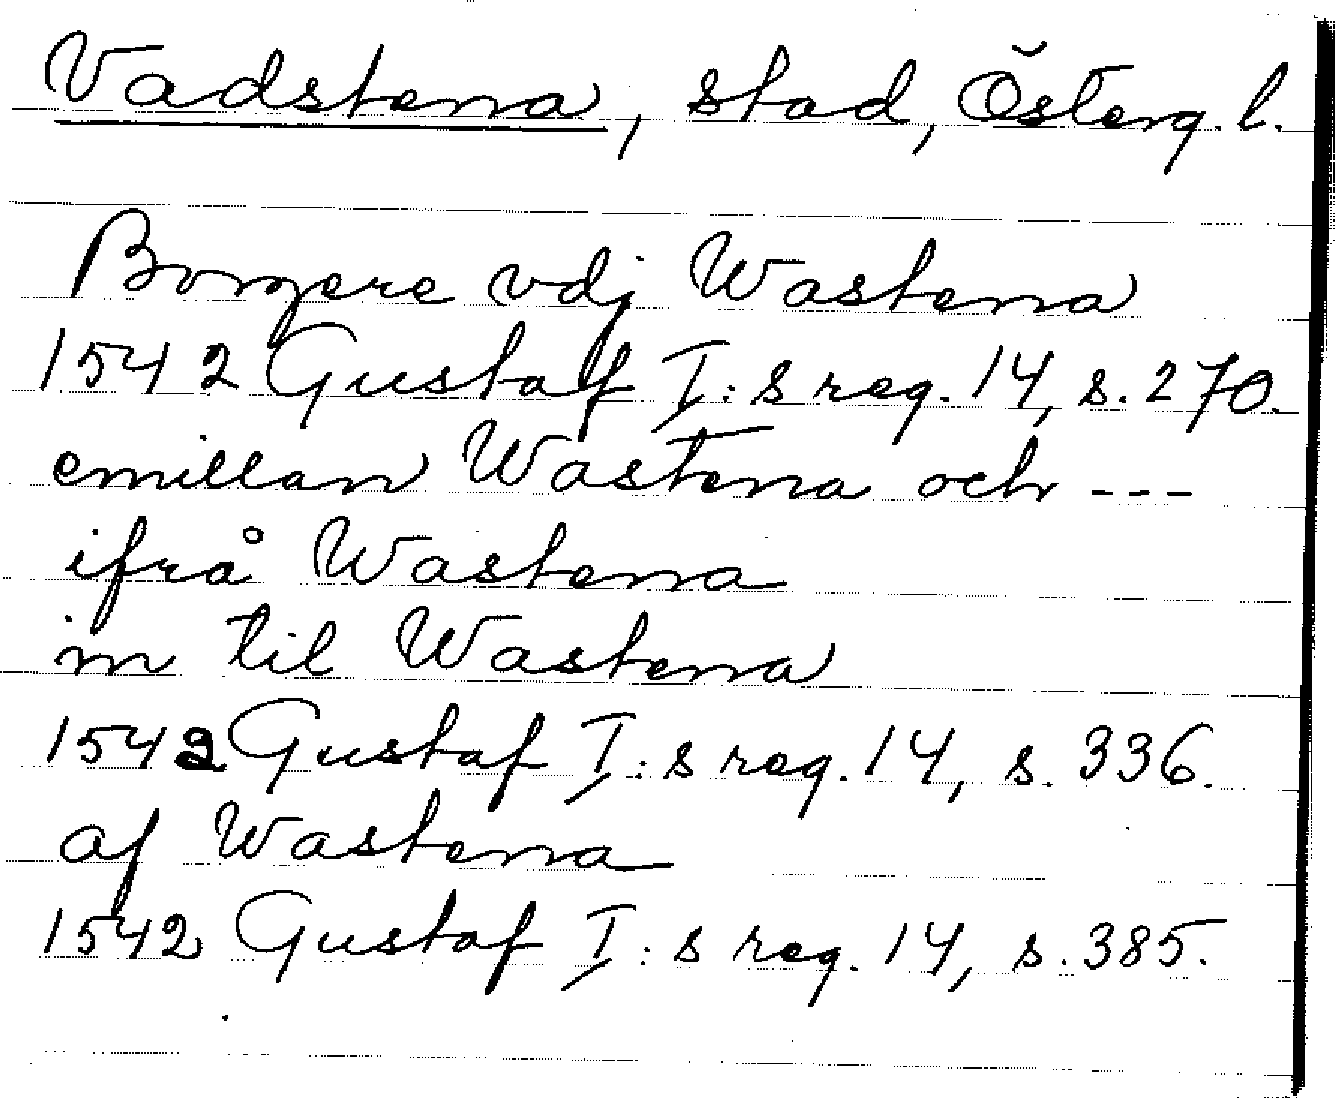 Vadstena, stad, Österg. l.
Borgere vdj Wastena
1542 Gustaf I:s reg. 14, s. 270.
emillan Wastena och ---
ifrå Wastena
in til Wastena
1542 Gustaf I:s reg. 14, s. 336.
af Wastena
1542 Gustaf I:s reg. 14, s. 385.